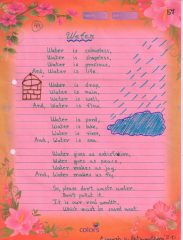 Water
Water is colourless,
Water is shapeless,
Water is precious,
And, Water is life.
Water is drop,
Water is rain,
Water is well,
And, Water is flow.
Water is pond,
Water is lake,
Water is river,
And, Water is sea.
Water gives us satisfaction,
Water gives us peace,
Water makes us joy,
And, Water makes us fly.
So, please don't waste water.
Don't pollute it.
It is our real wealth,
Which must be saved next.
colors